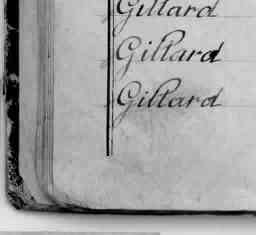 Gillard
Gillard
Gillard